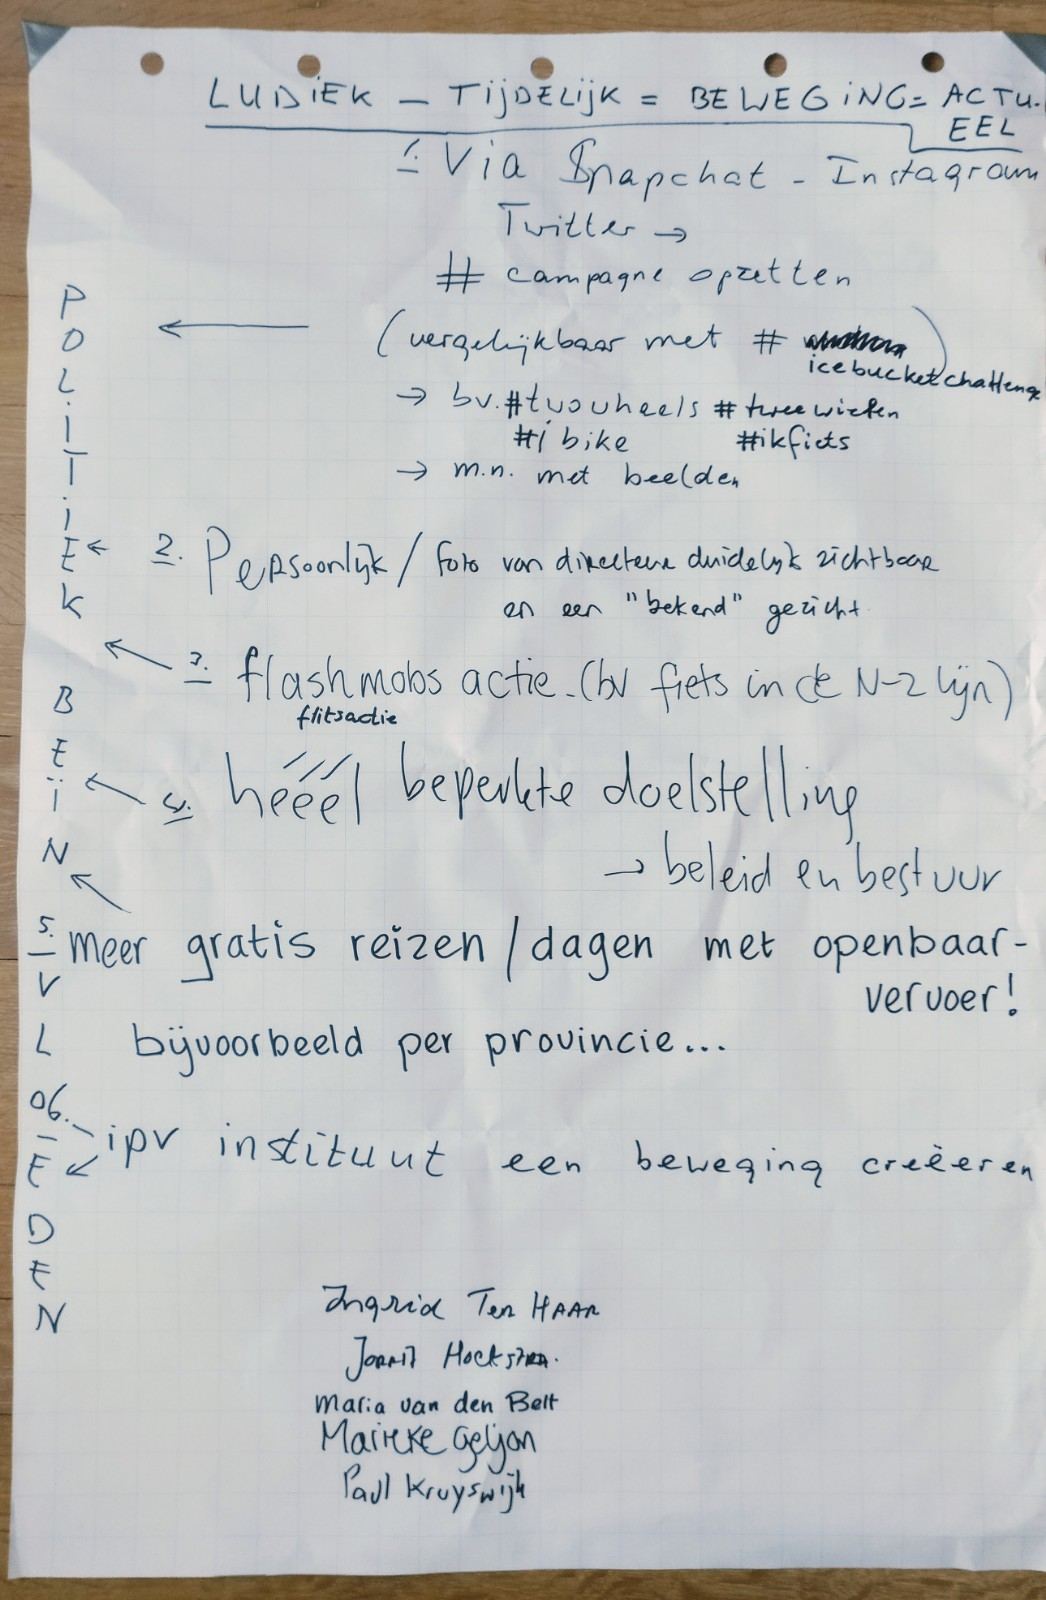 LUDIEK - TIJDELIJK = BEWEGING = ACTU-
EEL
1. Via Snapchat - Instagram
Twitter →
# campagne opzetten
(vergelijkbaar met #
icebucketchallenge)
→ bv. #twowheels #tweewielen
#i bike #ikfiets
→ m.n. met beelden
2. Persoonlijk / foto van directeur duidelijk zichtbaar
en een "bekend" gezicht
3. flashmobs actie - (bv fiets in de N-Z lijn)
flitsactie
4. hééél beperkte doelstelling
→ beleid en bestuur
5. meer gratis reizen / dagen met openbaar-
vervoer!
bijvoorbeeld per provincie...
6. ipv instituut een beweging creëeren
POLITIEK BEÏNVLOEDEN
Ingrid Ten Haar
Jorrit Hoekstra.
Maria van den Belt
Marieke Geljon
Paul Kruyswijk